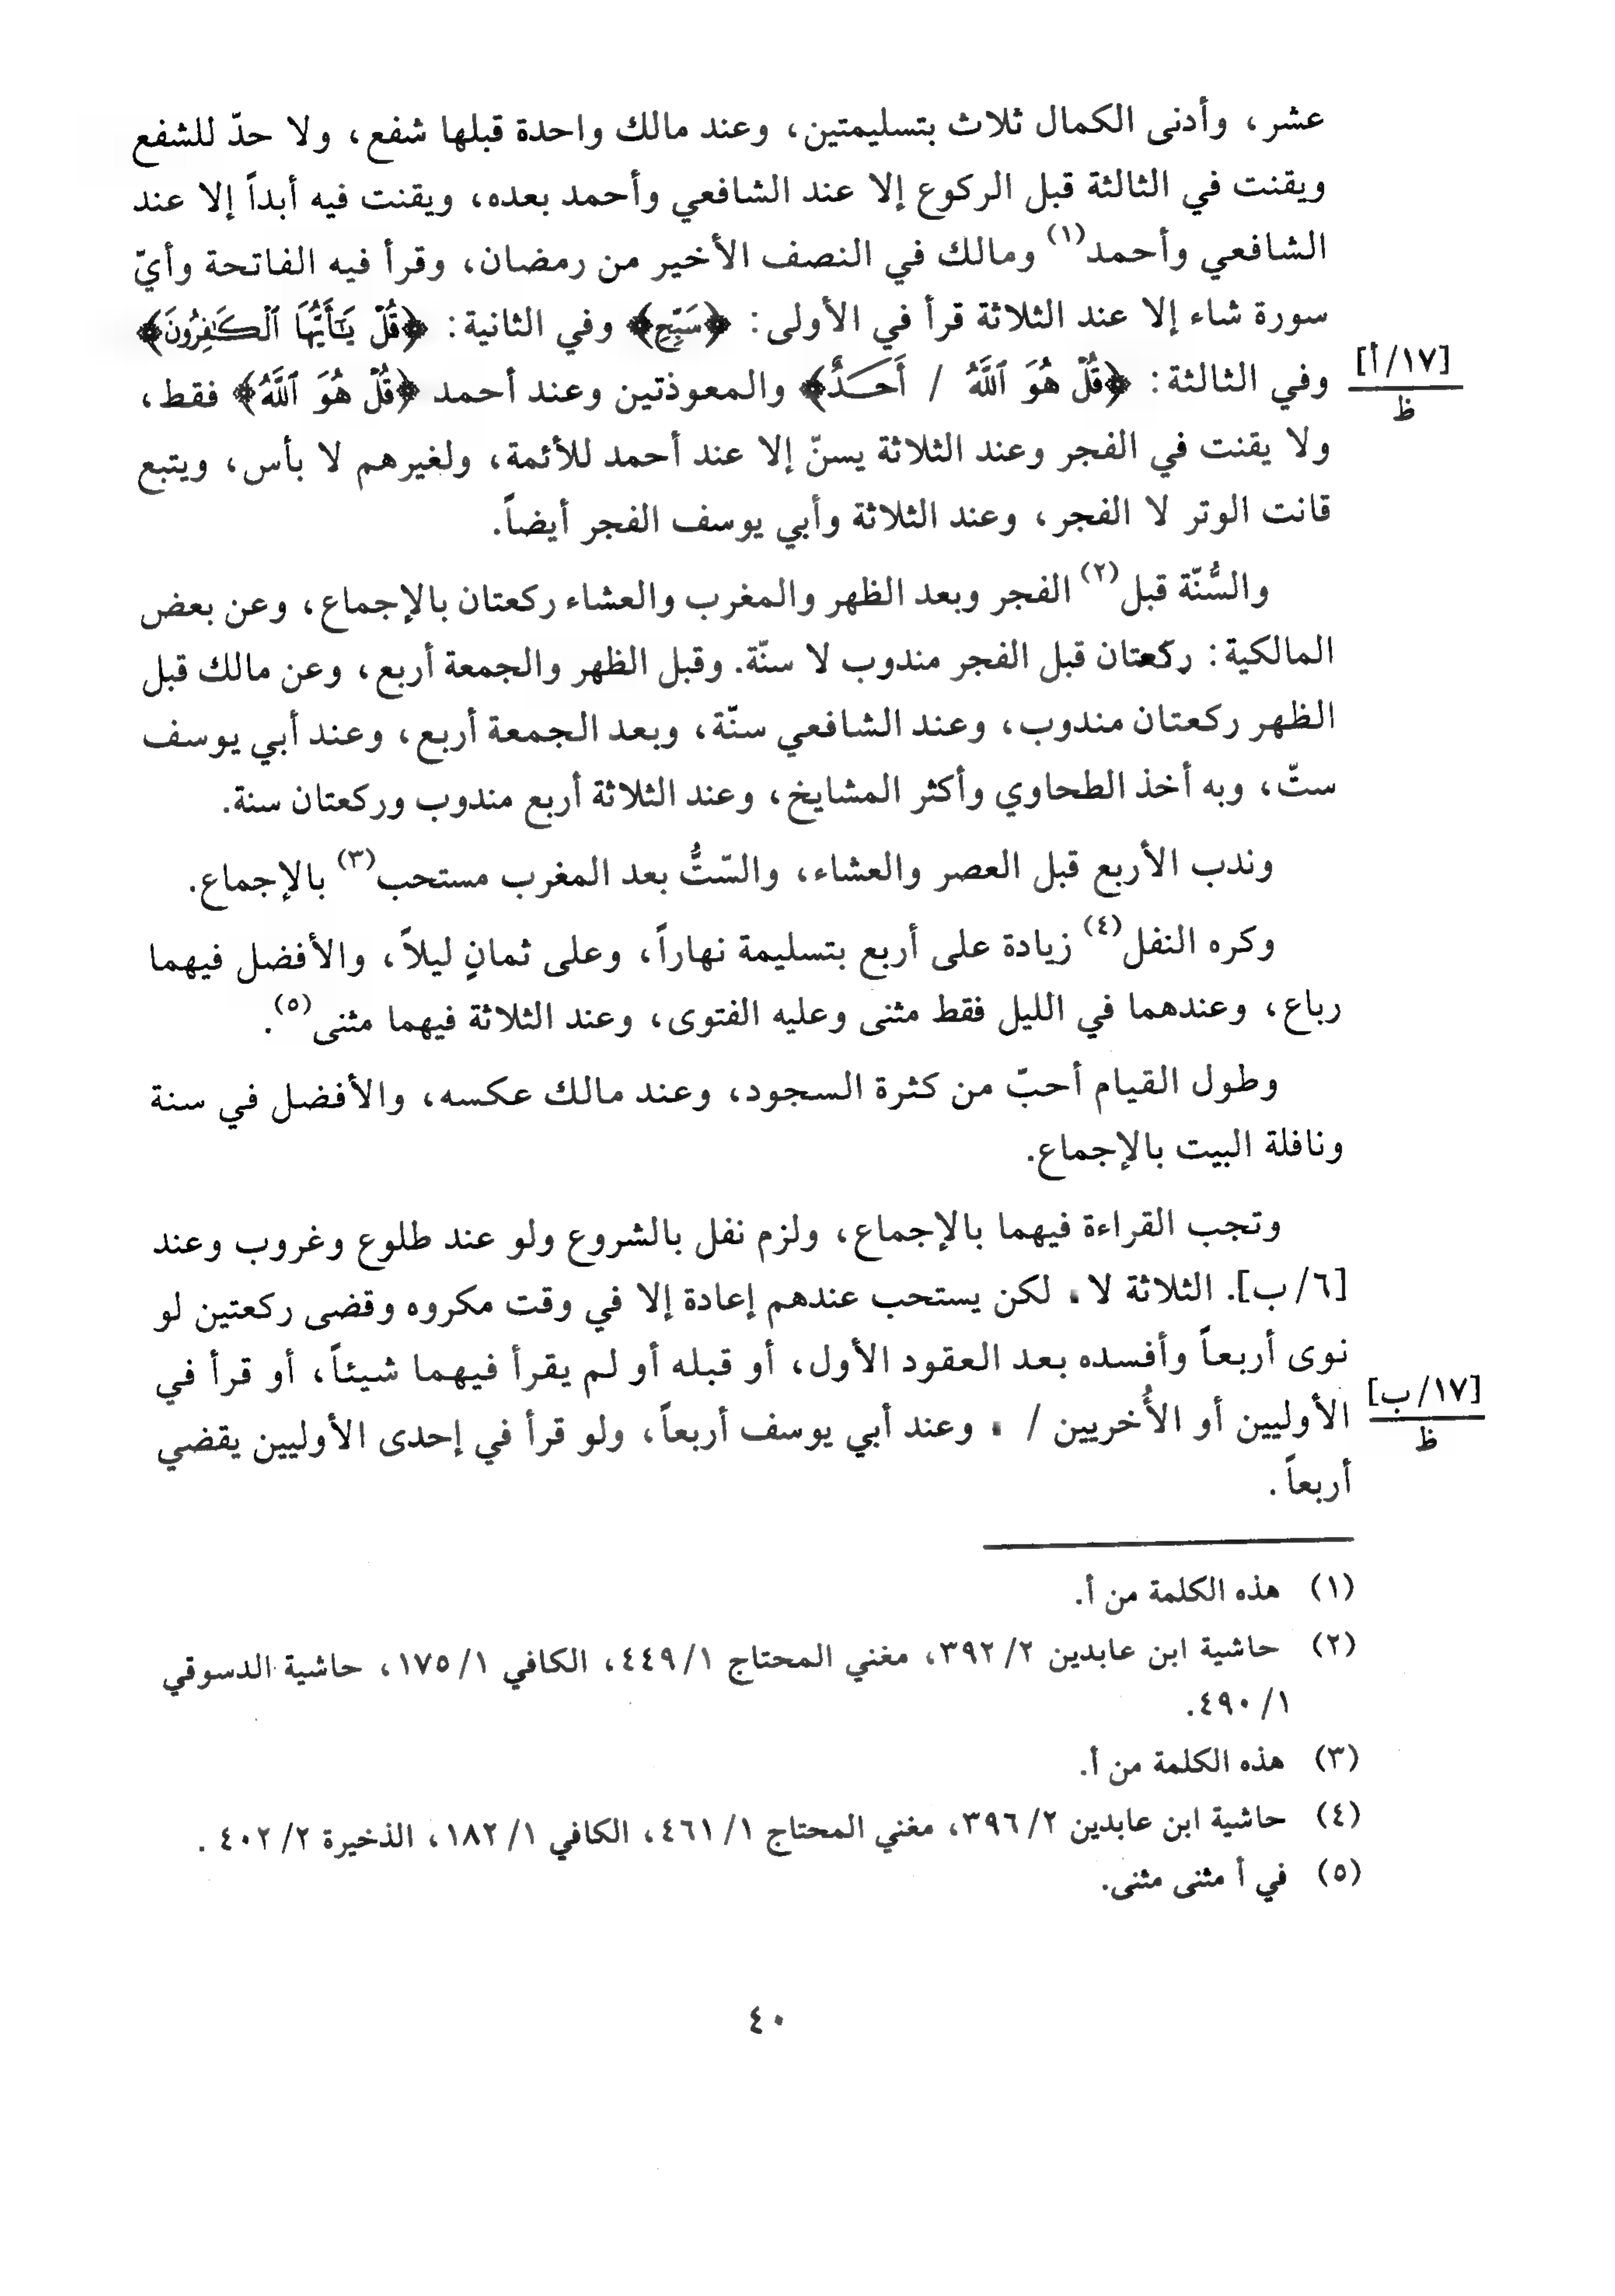 عشر، وأدنى الكمال ثلاث بتسليمتين، وعند مالك واحدة قبلها شفع، ولا حدّ للشفع
ويقنت في الثالثة قبل الركوع إلا عند الشافعي وأحمد بعده، ويقنت فيه أبداً إلا عند
الشافعي وأحمد(١) ومالك في النصف الأخير من رمضان، وقرأ فيه الفاتحة وأيّ
سورة شاء إلا عند الثلاثة قرأ في الأولى: ﴿سَبِّحِ﴾ وفي الثانية: ﴿قُلْ يَٰٓأَيُّهَا ٱلْكَٰفِرُونَ﴾
[١٧/أ]
ظ
وفي الثالثة: ﴿قُلْ هُوَ ٱللَّهُ / أَحَدٌ﴾ والمعوذتين وعند أحمد ﴿قُلْ هُوَ ٱللَّهُ﴾ فقط،
ولا يقنت في الفجر وعند الثلاثة يسنّ إلا عند أحمد للأئمة، ولغيرهم لا بأس، ويتبع
قانت الوتر لا الفجر، وعند الثلاثة وأبي يوسف الفجر أيضاً.
والسُّنّة قبل(٢) الفجر وبعد الظهر والمغرب والعشاء ركعتان بالإجماع، وعن بعض
المالكية: ركعتان قبل الفجر مندوب لا سنّة. وقبل الظهر والجمعة أربع، وعن مالك قبل
الظهر ركعتان مندوب، وعند الشافعي سنّة، وبعد الجمعة أربع، وعند أبي يوسف
ستّ، وبه أخذ الطحاوي وأكثر المشايخ، وعند الثلاثة أربع مندوب وركعتان سنة.
وندب الأربع قبل العصر والعشاء، والسّتُّ بعد المغرب مستحب(٣) بالإجماع.
وكره النفل(٤) زيادة على أربع بتسليمة نهاراً، وعلى ثمانٍ ليلاً، والأفضل فيهما
رباع، وعندهما في الليل فقط مثنى وعليه الفتوى، وعند الثلاثة فيهما مثنى(٥).
وطول القيام أحبّ من كثرة السجود، وعند مالك عكسه، والأفضل في سنة
ونافلة البيت بالإجماع.
وتجب القراءة فيهما بالإجماع، ولزم نفل بالشروع ولو عند طلوع وغروب وعند
[٦/ب]. الثلاثة لا. لكن يستحب عندهم إعادة إلا في وقت مكروه وقضى ركعتين لو
نوى أربعاً وأفسده بعد العقود الأول، أو قبله أو لم يقرأ فيهما شيئاً، أو قرأ في
[١٧/ب]
ظ
الأوليين أو الأُخريين / . وعند أبي يوسف أربعاً، ولو قرأ في إحدى الأوليين يقضي
أربعاً.
(١) هذه الكلمة من أ.
(٢) حاشية ابن عابدين ٢/٣٩٢، مغني المحتاج ١/٤٤٩، الكافي ١/١٧٥، حاشية الدسوقي
١/٤٩٠.
(٣) هذه الكلمة من أ.
(٤) حاشية ابن عابدين ٢/٣٩٦، مغني المحتاج ١/٤٦١، الكافي ١/١٨٢، الذخيرة ٢/٤٠٢.
(٥) في أ مثنى مثنى.
٤٠